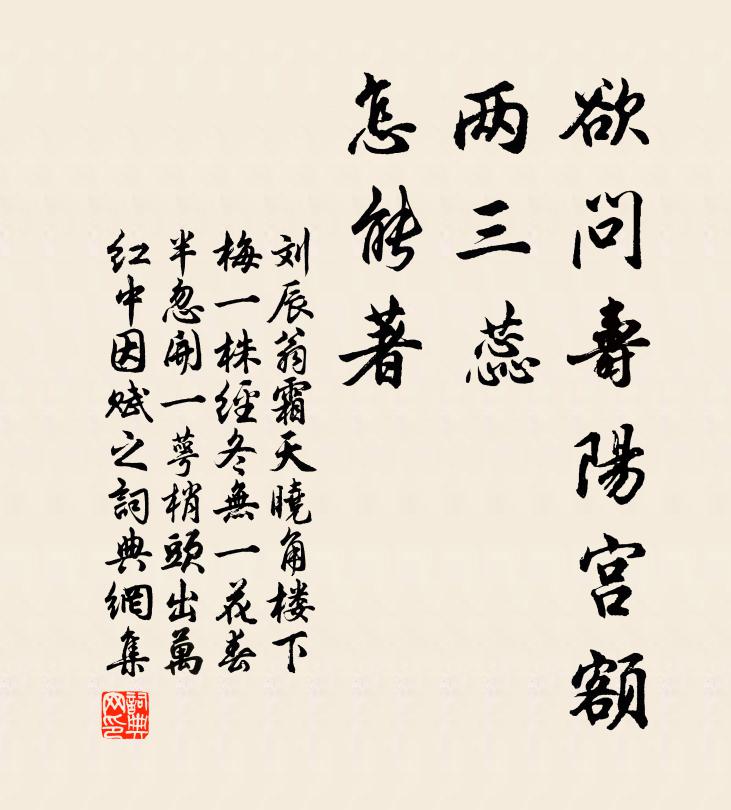 欲问壽陽宫額
两三蕊
怎能著
刘辰翁霜天曉角楼下
梅一株經冬無一花春
半忽開一萼梢頭出萬
红中因赋之詞典網集
詞典
网印